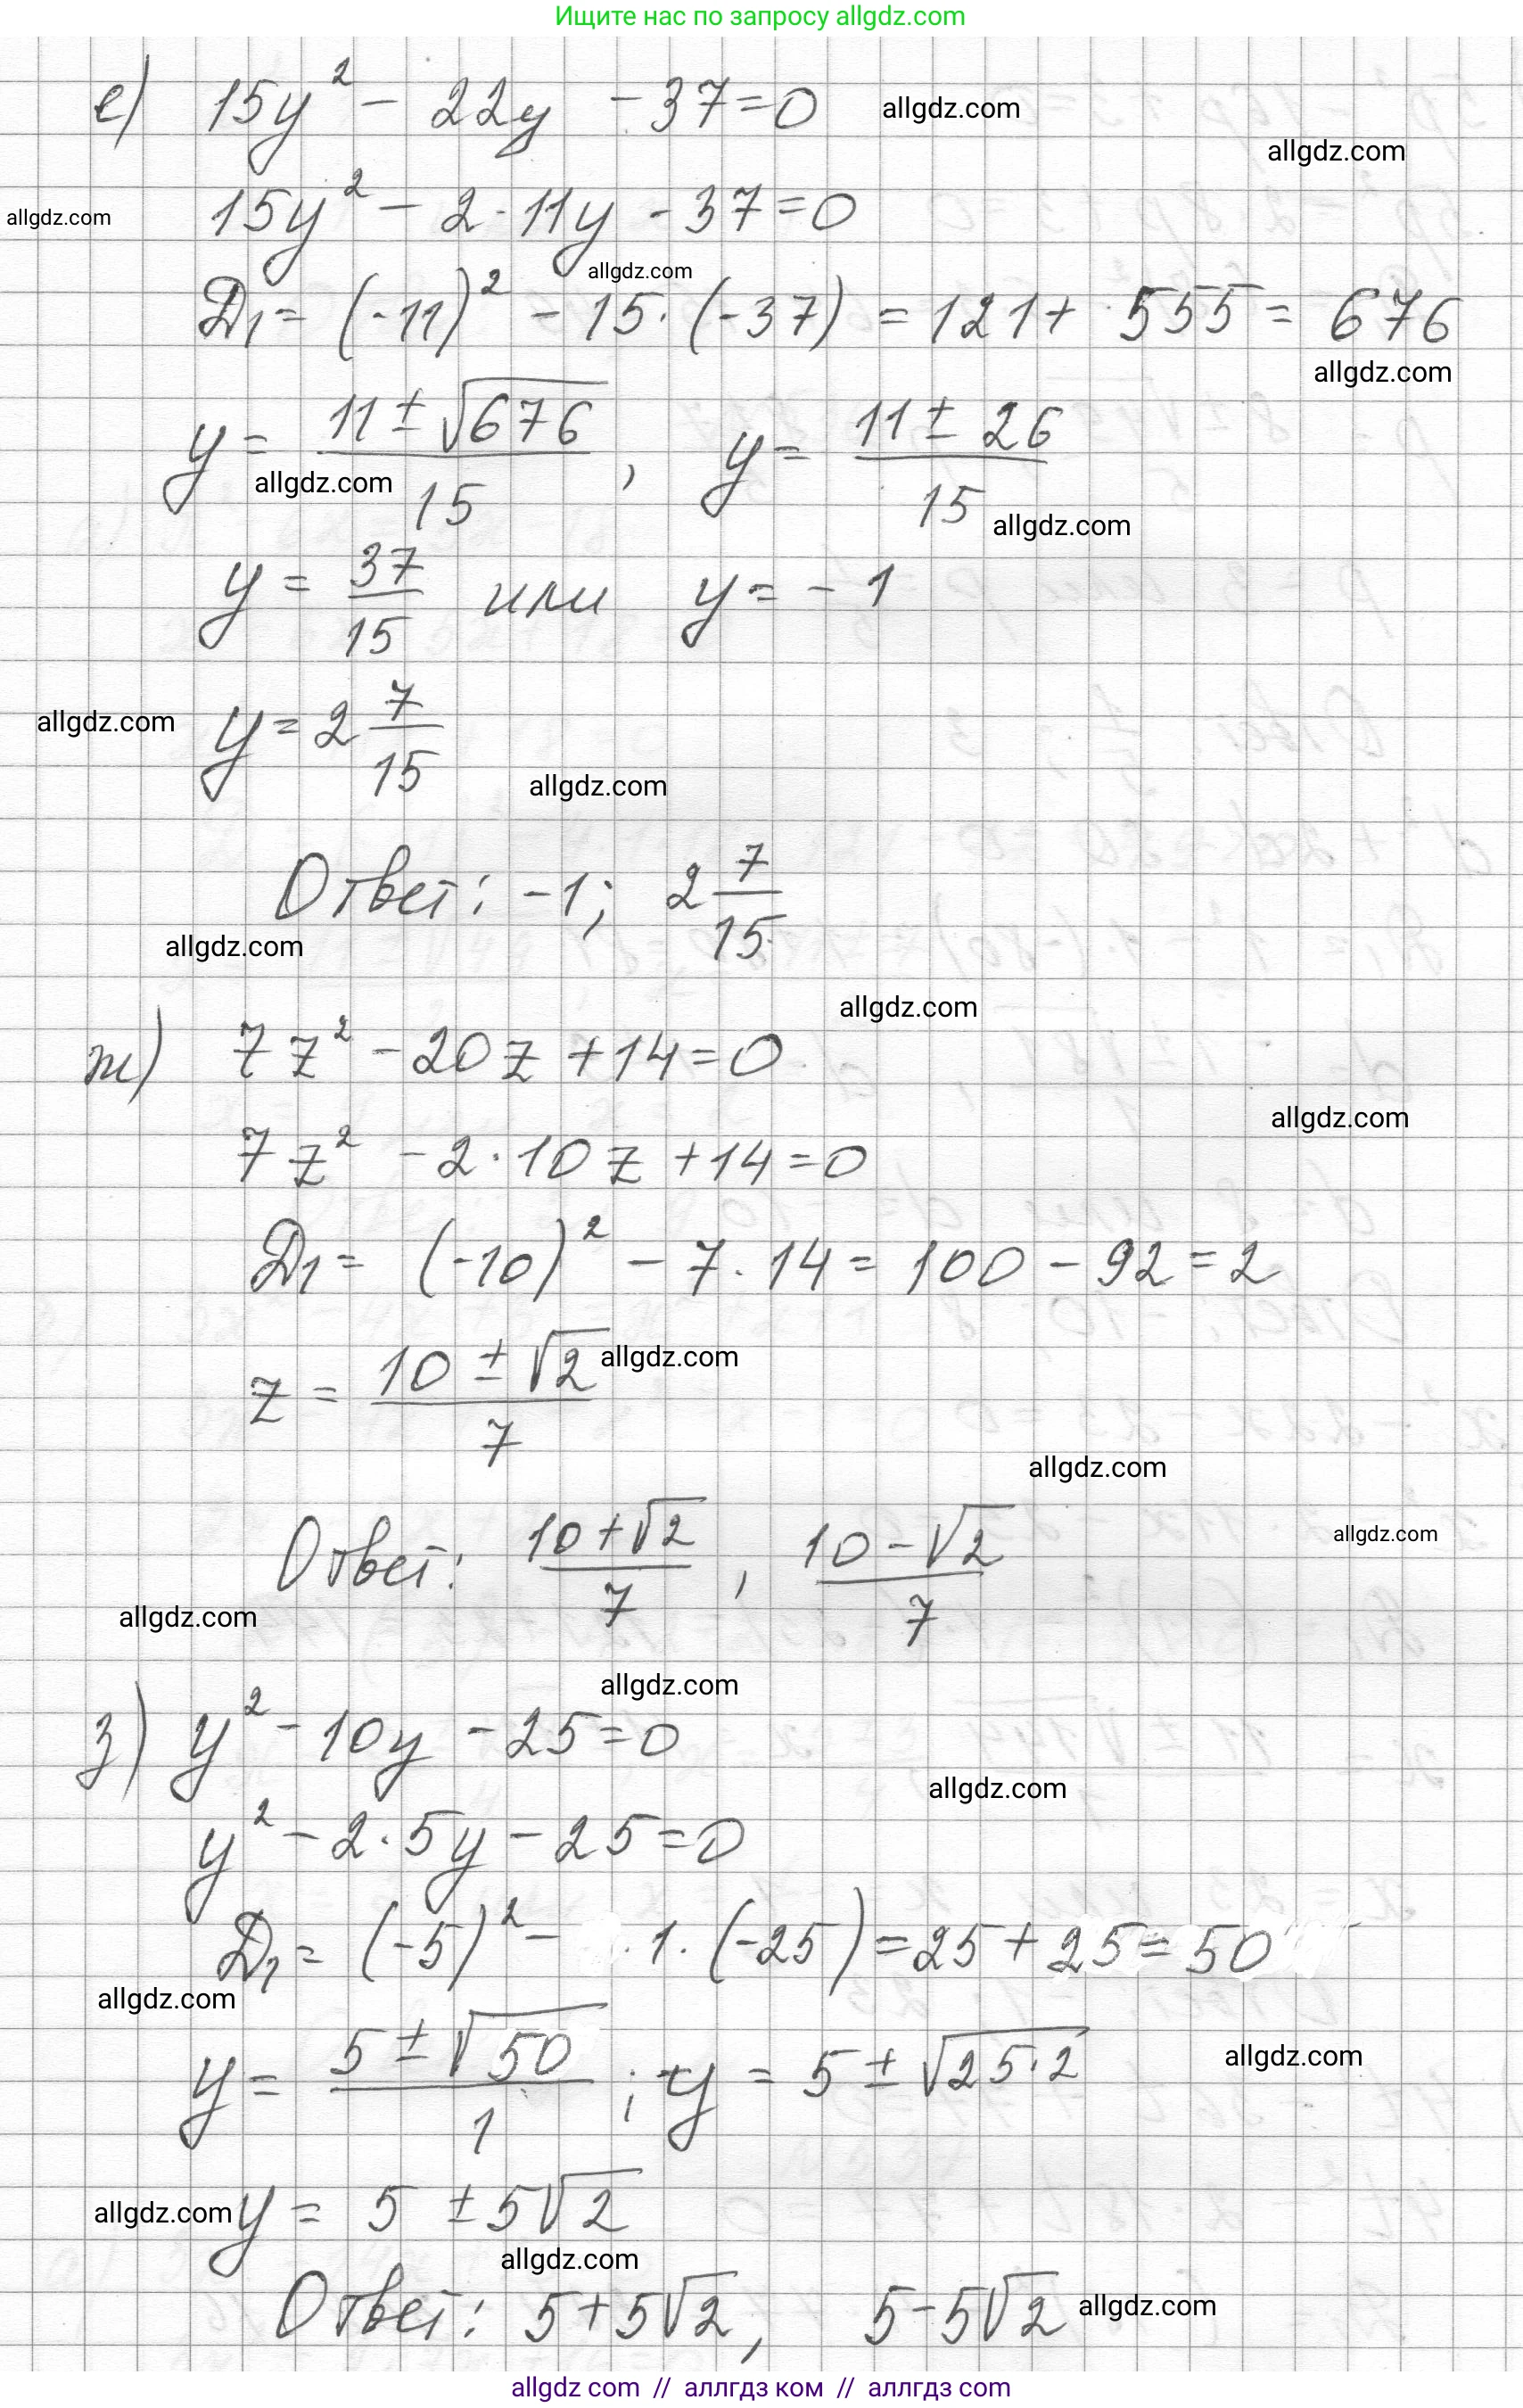 Ищите нас по запросу allgdz.com
е) 15y² - 22y - 37 = 0 allgdz.com
allgdz.com
allgdz.com 15y² - 2·11y - 37 = 0
allgdz.com
D₁ = (-11)² - 15·(-37) = 121 + 555 = 676
allgdz.com
y = (11 ± √676)/15, y = (11 ± 26)/15
allgdz.com allgdz.com
y = 37/15 или y = -1
allgdz.com y = 2 7/15
allgdz.com
Ответ: -1; 2 7/15
allgdz.com
allgdz.com
ж) 7z² - 20z + 14 = 0
allgdz.com
7z² - 2·10z + 14 = 0
D₁ = (-10)² - 7·14 = 100 - 92 = 2
z = (10 ± √2)/7 allgdz.com
allgdz.com
Ответ: (10+√2)/7, (10-√2)/7 allgdz.com
allgdz.com
allgdz.com
з) y² - 10y - 25 = 0
allgdz.com
y² - 2·5y - 25 = 0
D₁ = (-5)² - ·1·(-25) = 25 + 25 = 50
allgdz.com
y = (5 ± √50)/1; y = 5 ± √25·2 allgdz.com
allgdz.com y = 5 ± 5√2
allgdz.com
Ответ: 5+5√2, 5-5√2 allgdz.com
allgdz com // аллгдз ком // аллгдз com